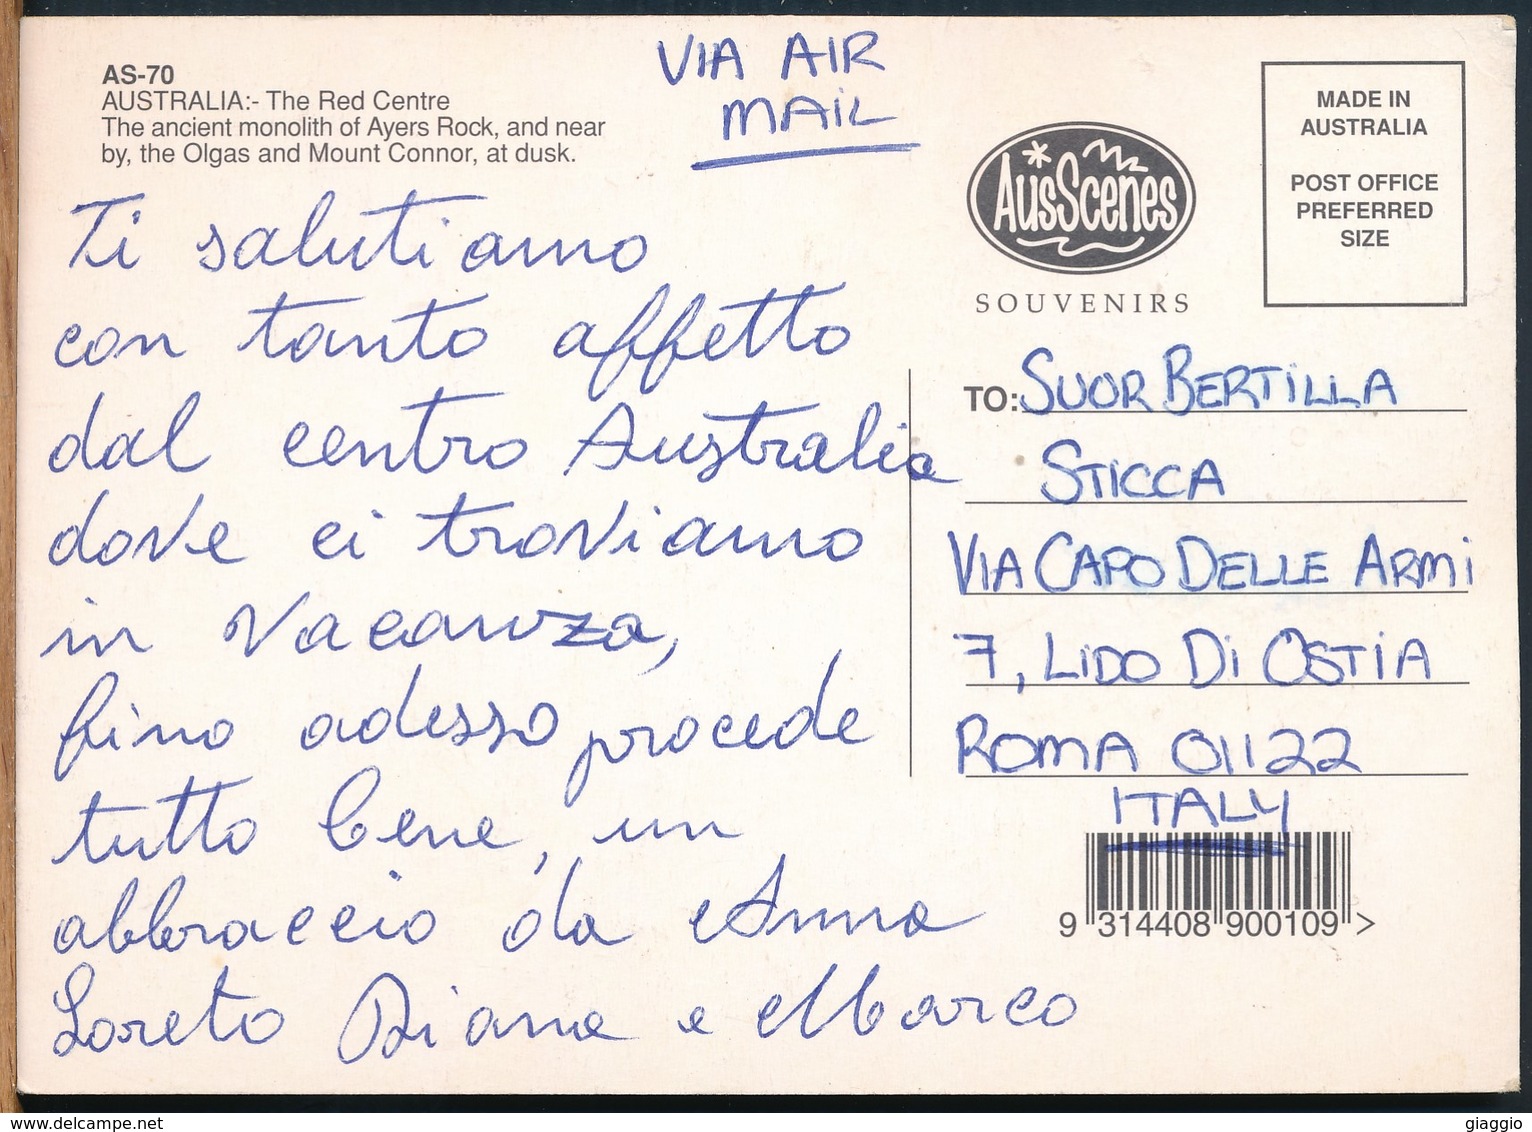 AS-70
AUSTRALIA:- The Red Centre
The ancient monolith of Ayers Rock, and near
by, the Olgas and Mount Connor, at dusk.
VIA AIR
MAIL
AusScenes
SOUVENIRS
MADE IN
AUSTRALIA
POST OFFICE
PREFERRED
SIZE
Ti salutiamo
con tanto affetto
dal centro Australia
dove ci troviamo
in vacanza,
fino adesso procede
tutto bene, un
abbraccio da Anna
Loreto Diana e Marco
TO: SUOR BERTILLA
STICCA
VIA CAPO DELLE ARMI
7, LIDO DI OSTIA
ROMA 01122
ITALY
9 314408 900109 >
www.delcampe.net
giaggio